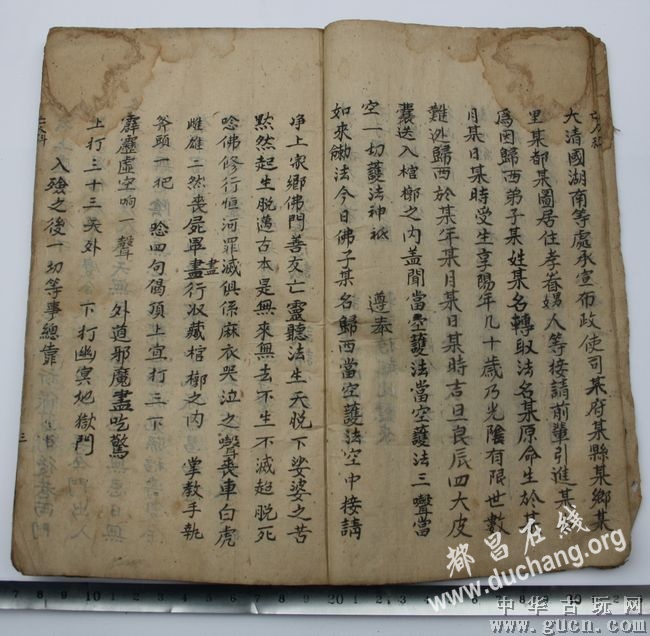 大清國湖南等處承宣布政使司某府某縣某鄉某
里某都某圖居住孝眷婦人等接請前輩引進某
爲因歸西弟子某姓某名轉取法名某原命生於某
月某日某時受生享陽年几十歲乃光陰有限世數
難逃歸西於某年某月某日某時吉旦良辰四大皮
囊送入棺槨之内盖聞當空護法當空護法三聲當
空一切護法神祇 遵奉
如來勅法今日佛子某名歸西當空護法空中接請
净土家鄉佛門善友亡靈聽法生天脱下娑婆之苦
黙然起生脱邁古本是無來無去不生不滅超脱死
唸佛修行恒河罪滅俱係麻衣哭泣之聲喪車白虎
雌雄二然喪屍軍盡行收藏棺槨之内 掌教手執
盡
斧頭一把 唸四句偈頂上宜打三下
霹靂虚空响一聲 外道邪魔盡吃驚
上打三十三天外 下打幽冥地獄門
入殮之後一切等事總靠
三
都昌在线
www.duchang.org
中华古玩网
www.gucn.com